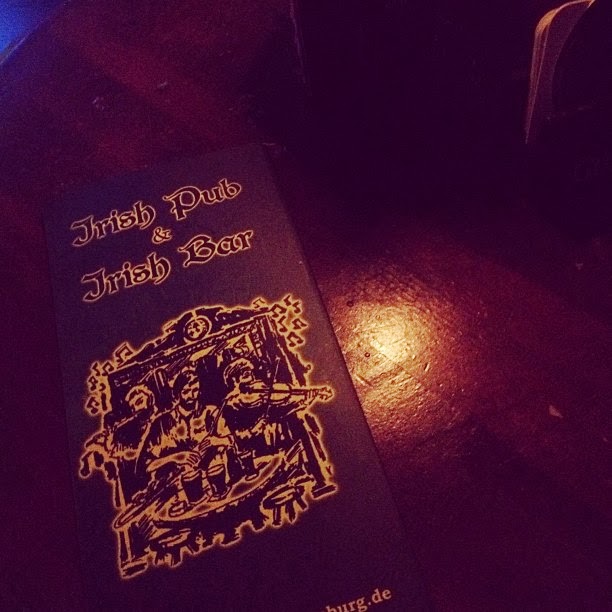 Irish Pub
&
Irish Bar
burg.de